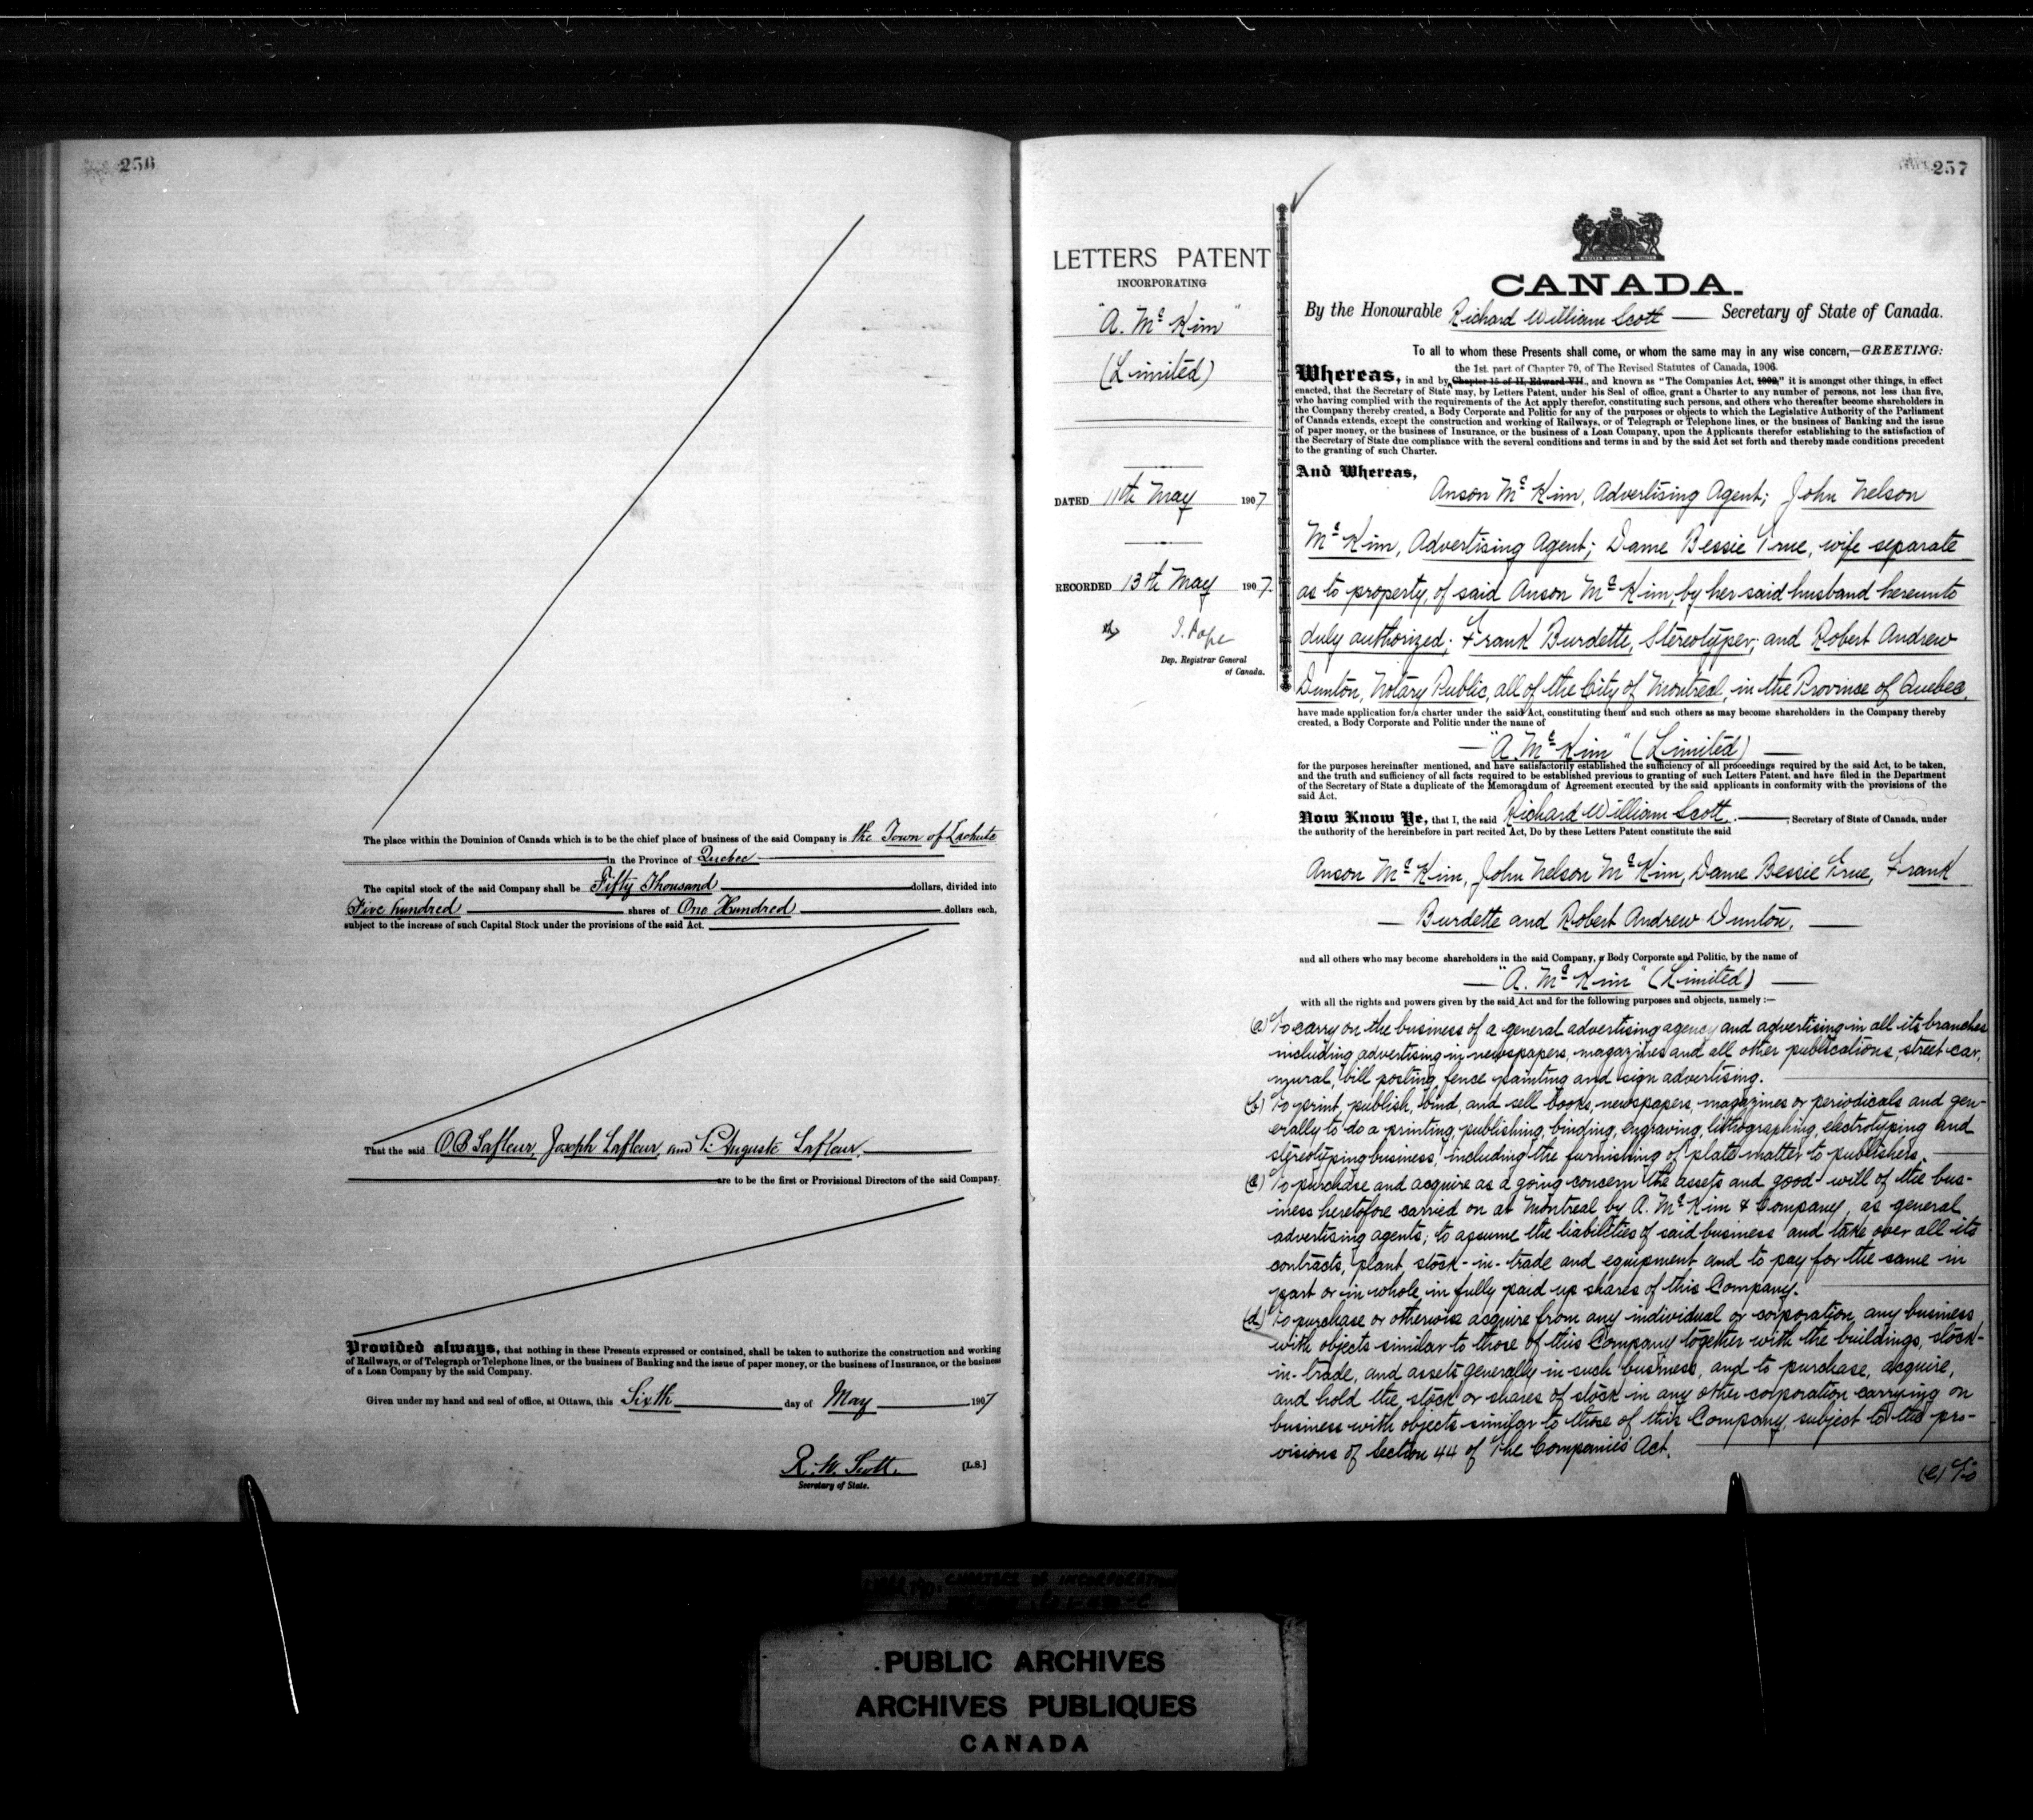 256
The place within the Dominion of Canada which is to be the chief place of business of the said Company is the Town of Lachute
in the Province of Quebec
The capital stock of the said Company shall be Fifty Thousand dollars, divided into
Five hundred shares of One Hundred dollars each,
subject to the increase of such Capital Stock under the provisions of the said Act.
That the said O.B. Lafleur, Joseph Lafleur, and Auguste Lafleur,
are to be the first or Provisional Directors of the said Company.
Provided always, that nothing in these Presents expressed or contained, shall be taken to authorize the construction and working
of Railways, or of Telegraph or Telephone lines, or the business of Banking and the issue of paper money, or the business of Insurance, or the business
of a Loan Company by the said Company.
Given under my hand and seal of office, at Ottawa, this Sixth day of May 1907
R. W. Scott. [L.S.]
Secretary of State.
257
LETTERS PATENT
INCORPORATING
"A. McKim"
(Limited)
DATED 11th May 1907
RECORDED 13th May 1907.
J. Pope
Dep. Registrar General
of Canada.
CANADA.
By the Honourable Richard William Scott Secretary of State of Canada.
To all to whom these Presents shall come, or whom the same may in any wise concern,—GREETING:
the 1st. part of Chapter 79, of The Revised Statutes of Canada, 1906.
Whereas, in and by Chapter 15 of II, Edward VII., and known as "The Companies Act, 1902," it is amongst other things, in effect
enacted, that the Secretary of State may, by Letters Patent, under his Seal of office, grant a Charter to any number of persons, not less than five,
who having complied with the requirements of the Act apply therefor, constituting such persons, and others who thereafter become shareholders in
the Company thereby created, a Body Corporate and Politic for any of the purposes or objects to which the Legislative Authority of the Parliament
of Canada extends, except the construction and working of Railways, or of Telegraph or Telephone lines, or the business of Banking and the issue
of paper money, or the business of Insurance, or the business of a Loan Company, upon the Applicants therefor establishing to the satisfaction of
the Secretary of State due compliance with the several conditions and terms in and by the said Act set forth and thereby made conditions precedent
to the granting of such Charter.
And Whereas,
Anson McKim, Advertising Agent; John Nelson
McKim, Advertising Agent; Dame Bessie True, wife separate
as to property, of said Anson McKim, by her said husband hereunto
duly authorized; Frank Burdette, Stereotyper; and Robert Andrew
Dunton, Notary Public, all of the City of Montreal, in the Province of Quebec,
have made application for a charter under the said Act, constituting them and such others as may become shareholders in the Company thereby
created, a Body Corporate and Politic under the name of
"A. McKim" (Limited)
for the purposes hereinafter mentioned, and have satisfactorily established the sufficiency of all proceedings required by the said Act, to be taken,
and the truth and sufficiency of all facts required to be established previous to granting of such Letters Patent, and have filed in the Department
of the Secretary of State a duplicate of the Memorandum of Agreement executed by the said applicants in conformity with the provisions of the
said Act.
Now Know Ye, that I, the said Richard William Scott, Secretary of State of Canada, under
the authority of the hereinbefore in part recited Act, Do by these Letters Patent constitute the said
Anson McKim, John Nelson McKim, Dame Bessie True, Frank
Burdette and Robert Andrew Dunton,
and all others who may become shareholders in the said Company, a Body Corporate and Politic, by the name of
"A. McKim" (Limited)
with all the rights and powers given by the said Act and for the following purposes and objects, namely:—
(a) To carry on the business of a general advertising agency and advertising in all its branches
including advertising in newspapers, magazines and all other publications, street car,
mural, bill posting, fence painting and sign advertising.
(b) To print, publish, bind, and sell books, newspapers, magazines or periodicals and gen-
erally to do a printing, publishing, binding, engraving, lithographing, electrotyping and
stereotyping business, including the furnishing of plate matter to publishers.
(c) To purchase and acquire as a going concern the assets and good will of the bus-
iness heretofore carried on at Montreal by A. McKim & Company, as general
advertising agents; to assume the liabilities of said business and take over all its
contracts, plant, stock-in-trade and equipment and to pay for the same in
part or in whole, in fully paid up shares of this Company.
(d) To purchase or otherwise acquire from any individual or corporation, any business
with objects similar to those of this Company together with the buildings, stock-
in-trade, and assets generally in such business, and to purchase, acquire,
and hold the stock or shares of stock in any other corporation carrying on
business with objects similar to those of this Company, subject to the pro-
visions of Section 44 of The Companies Act.
(e) To
CHARTERS OF INCORPORATION
PUBLIC ARCHIVES
ARCHIVES PUBLIQUES
CANADA